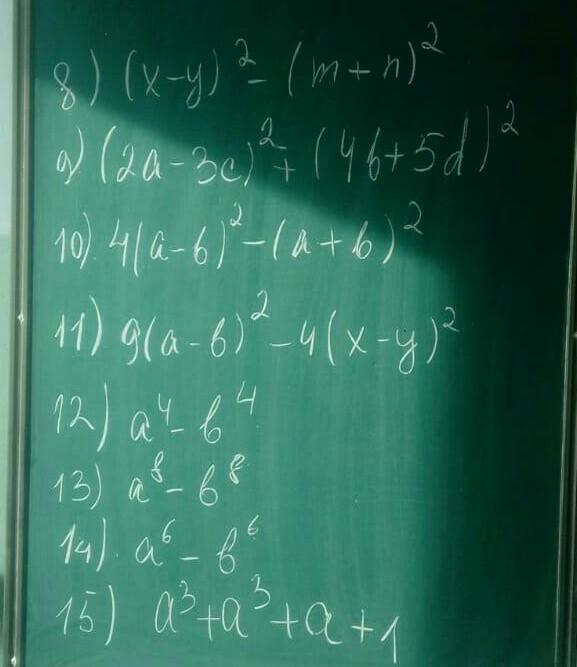 8) (x-y)² - (m+n)²
9) (2a-3c)² + (4b+5d)²
10) 4(a-b)² - (a+b)²
11) 9(a-b)² - 4(x-y)²
12) a⁴ - b⁴
13) a⁸ - b⁸
14) a⁶ - b⁶
15) a³ + a³ + a + 1